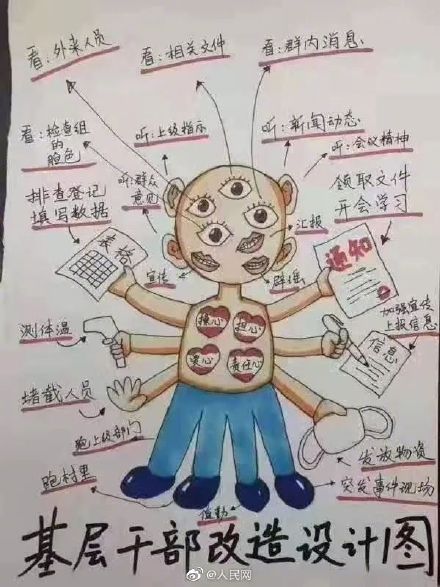 看:外来人员
看:相关文件
看:群内消息
看:检查组
的
脸色
听:上级指示
听:新闻动态
听:会议精神
听:群众
意见
排查登记
填写数据
领取文件
开会学习
表格
宣传
汇报
辟谣
通知
操心
担心
责任心
测体温
加强宣传
上报信息
信息
堵截人员
跑上级部门
跑村里
值勤
发放物资
突发事件现场
基层干部改造设计图
@人民网